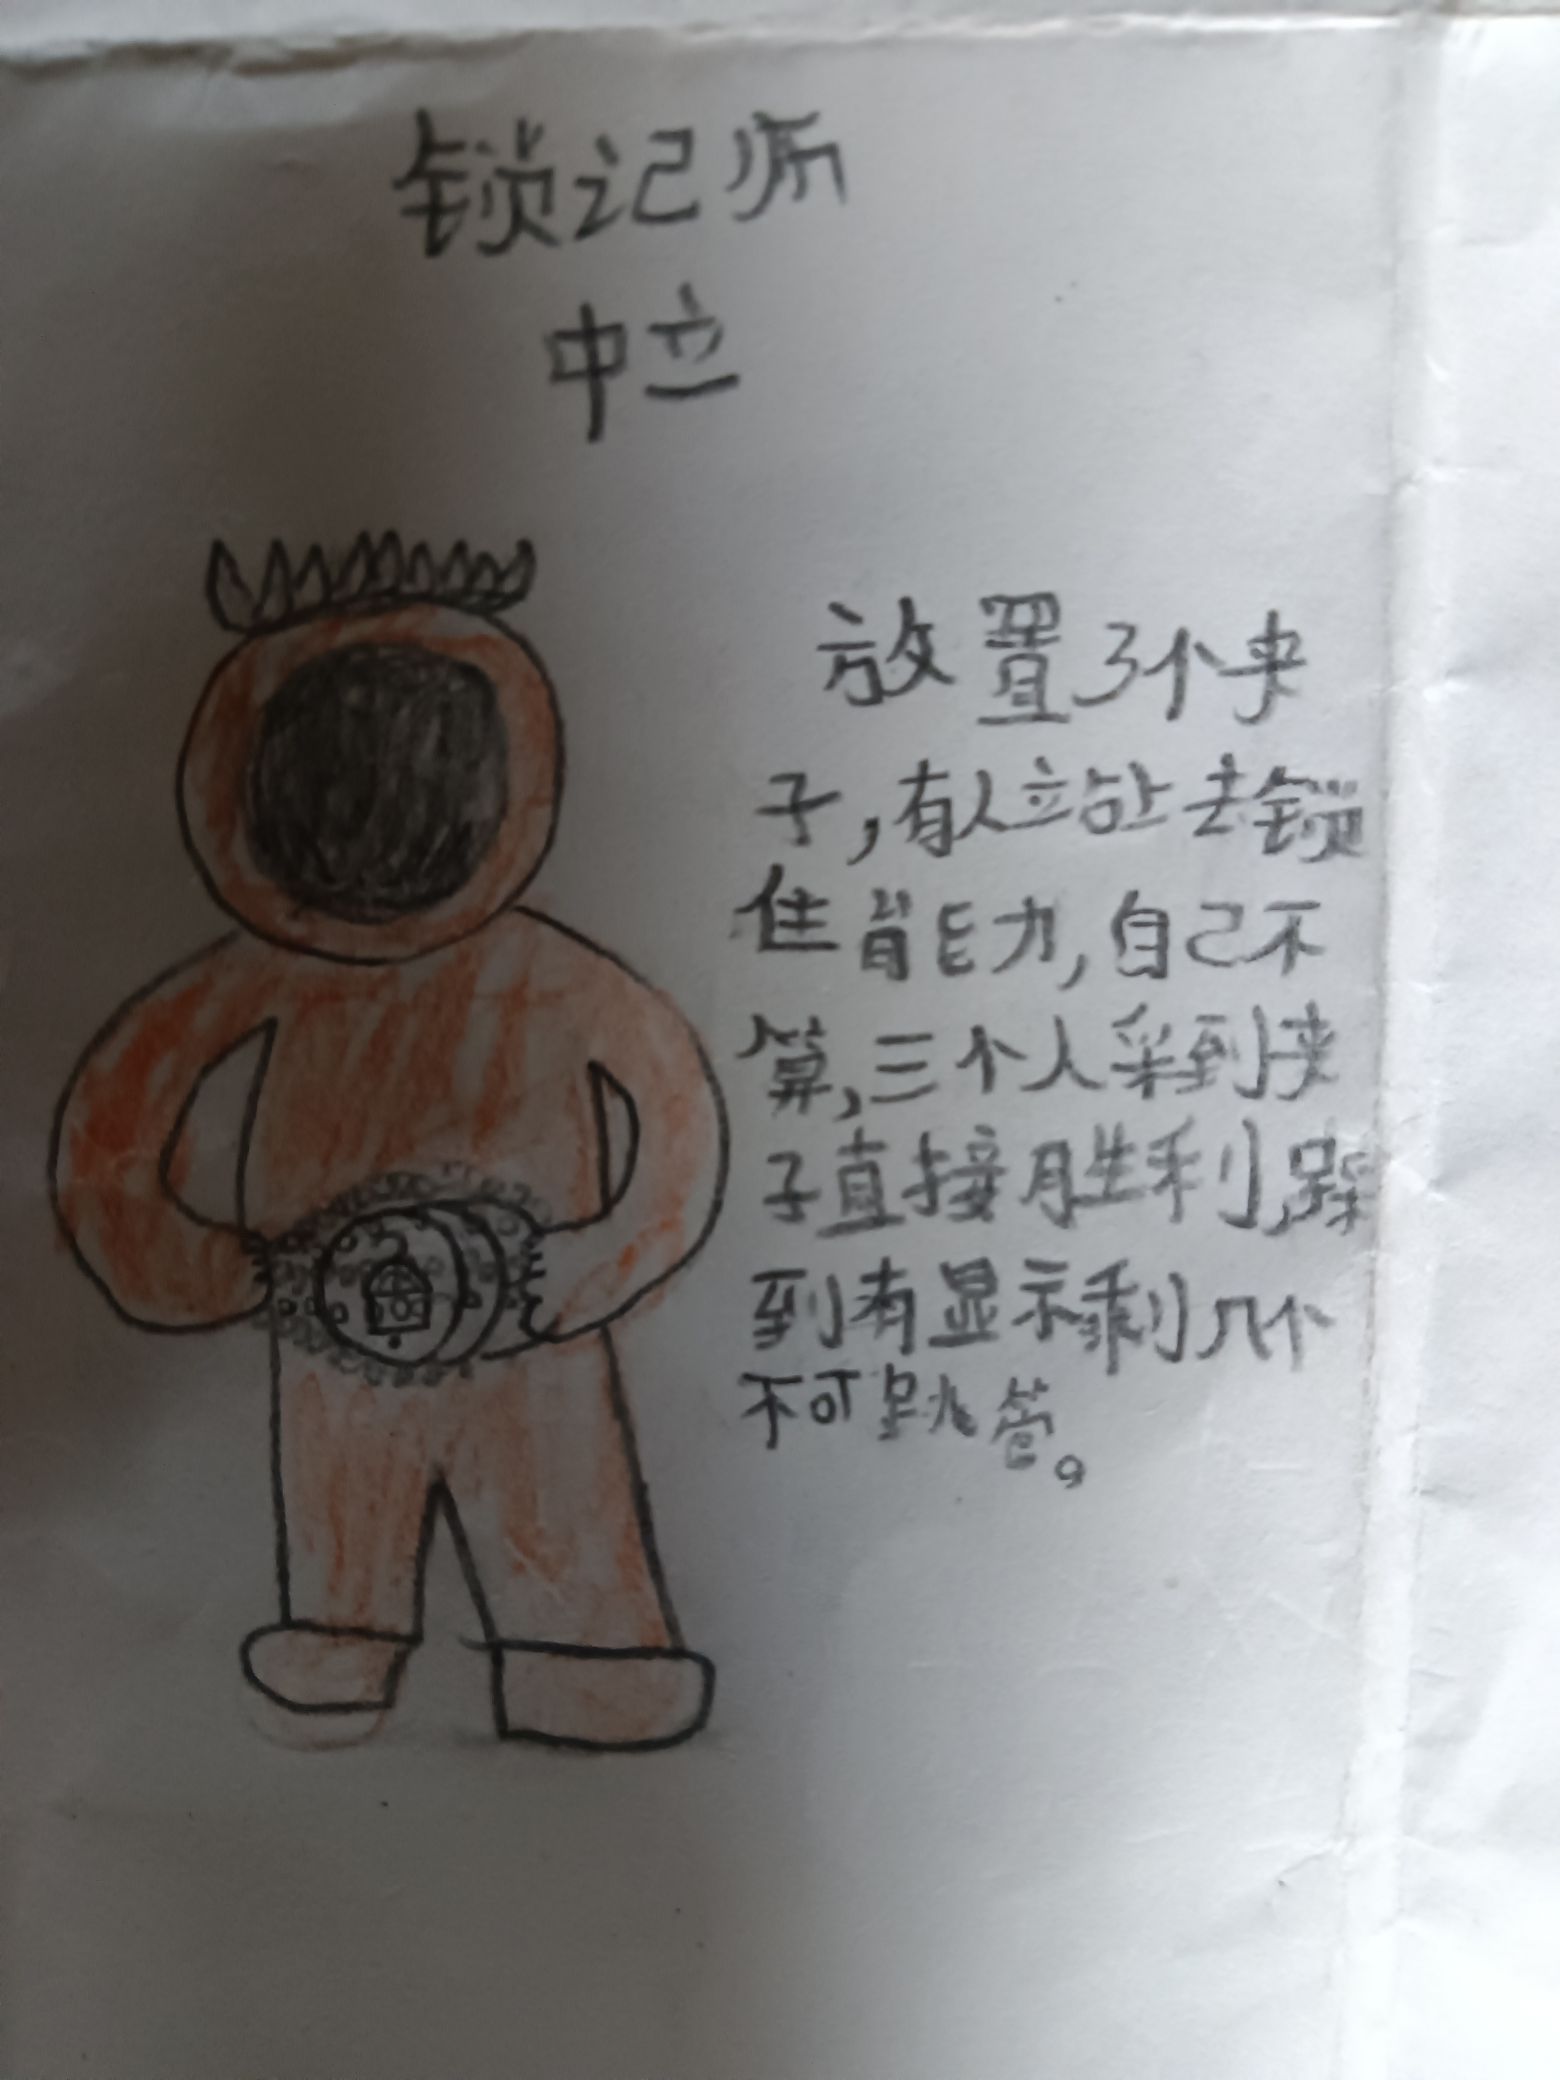 锁记师
中立
放置3个夹
子,有人立占上去锁
住能力,自己不
算,三个人采到夹
子直接胜利,踩
到有显示剩几个
不可跳管。